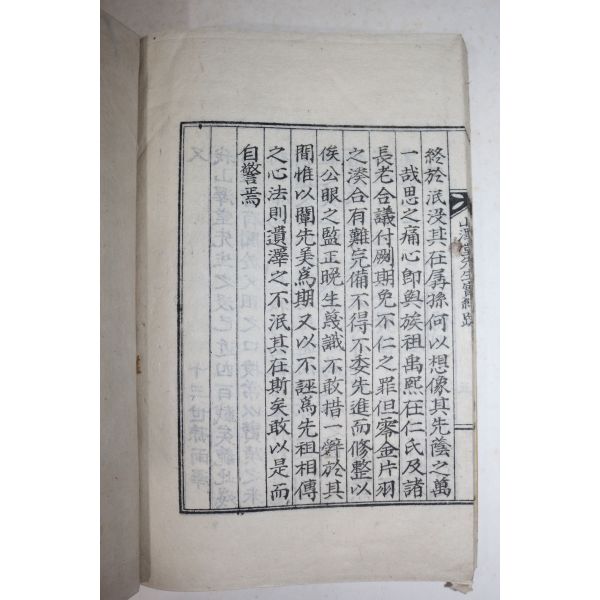 山澤堂先生實紀跋
終於泯没其在孱孫何以想像其先蔭之萬
一哉思之痛心卽與族祖禹熙在仁氏及諸
長老合議付劂期免不仁之罪但零金片羽
之湊合有難完備不得不委先進而修整以
俟公眼之監正晩生蔑識不敢措一辭於其
間惟以闡先美爲期又以不誣爲先祖相傳
之心法則遺澤之不泯其在斯矣敢以是而
自警焉